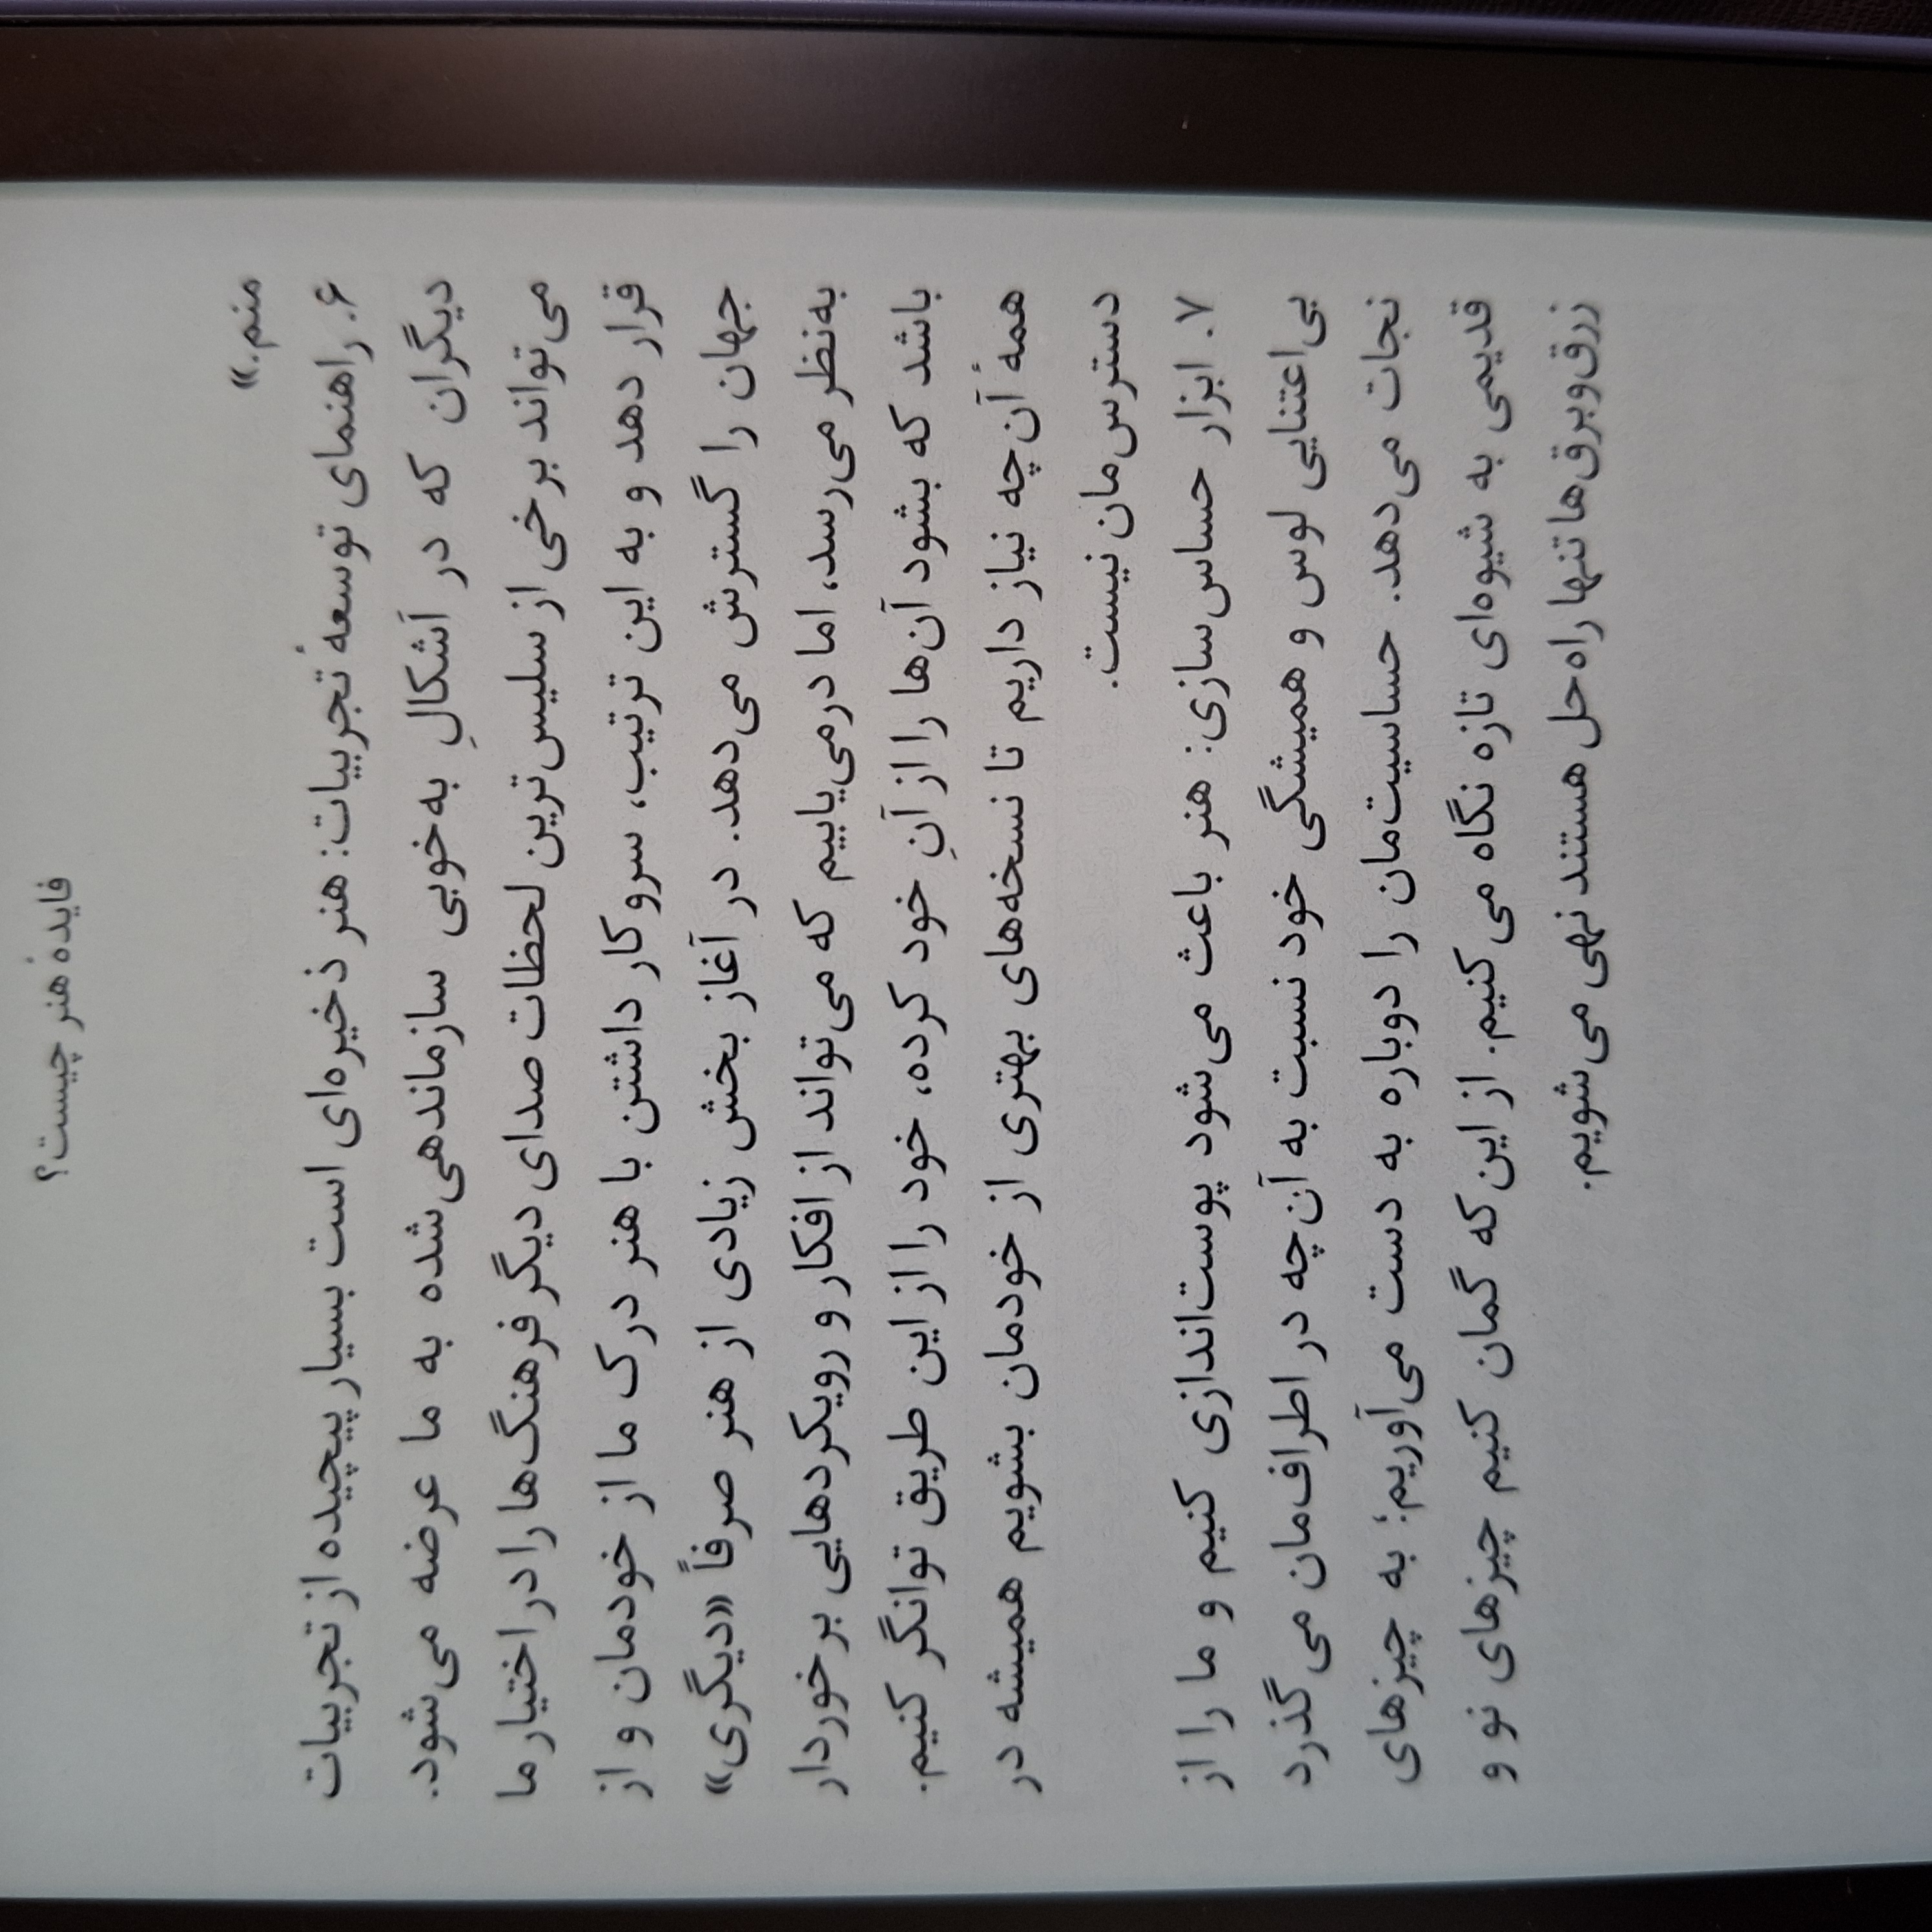 فایدهٔ هنر چیست؟
منم.»
۶. راهنمای توسعهٔ تجربیات: هنر ذخیره‌ای است بسیار پیچیده از تجربیات
دیگران که در اَشکالِ به‌خوبی سازماندهی‌شده به ما عرضه می‌شود.
می‌تواند برخی از سلیس‌ترین لحظات صدای دیگر فرهنگ‌ها را در اختیار ما
قرار دهد و به این ترتیب، سروکار داشتن با هنر درک ما از خودمان و از
جهان را گسترش می‌دهد. در آغاز بخش زیادی از هنر صرفاً «دیگری»
به‌نظر می‌رسد، اما درمی‌یابیم که می‌تواند از افکار و رویکردهایی برخوردار
باشد که بشود آن‌ها را از آنِ خود کرده، خود را از این طریق توانگر کنیم.
همهٔ آن‌چه نیاز داریم تا نسخه‌های بهتری از خودمان بشویم همیشه در
دسترس‌مان نیست.
۷. ابزار حساس‌سازی: هنر باعث می‌شود پوست‌اندازی کنیم و ما را از
بی‌اعتنایی لوس و همیشگی خود نسبت به آن‌چه در اطراف‌مان می‌گذرد
نجات می‌دهد. حساسیت‌مان را دوباره به دست می‌آوریم؛ به چیزهای
قدیمی به شیوه‌ای تازه نگاه می‌کنیم. از این که گمان کنیم چیزهای نو و
زرق‌وبرق‌ها تنها راه‌حل هستند نهی می‌شویم.